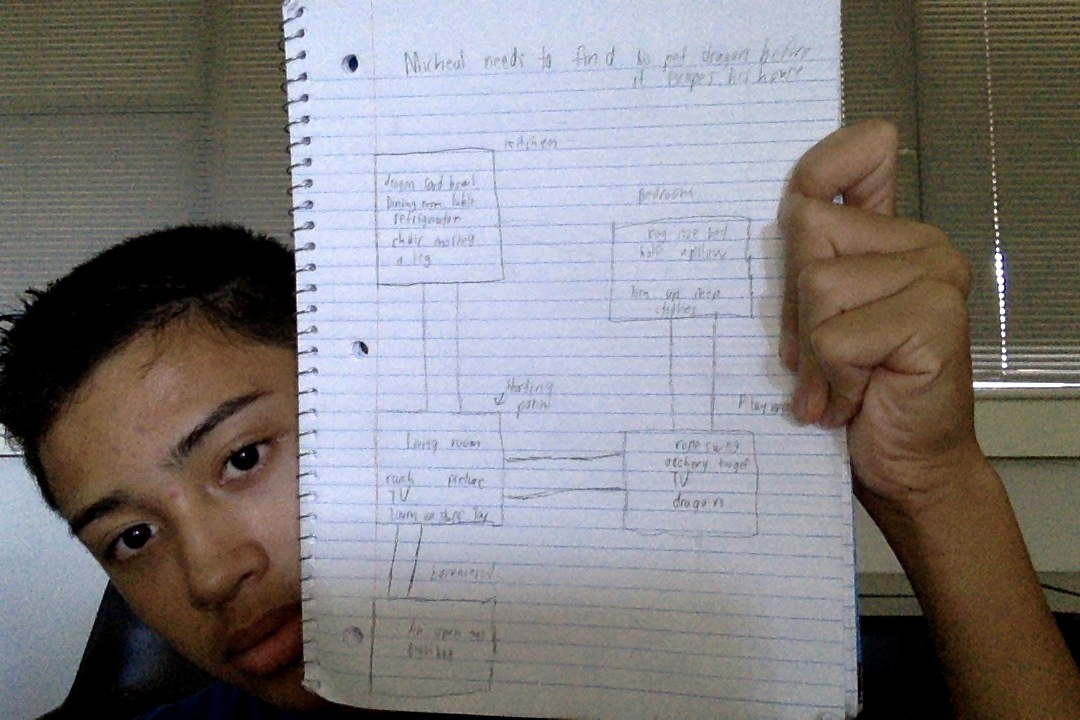 Micheal needs to find his pet dragon before
it escapes his house
kitchen
dragon food bowl
Dining room table
refrigerator
chair missing
a leg
bedroom
king size bed
half a pillow
torn up sleep
clothes
starting
point
Living room
couch picture
TV
torn up
Play
rope swing
archery target
TV
dragon
basement
An open